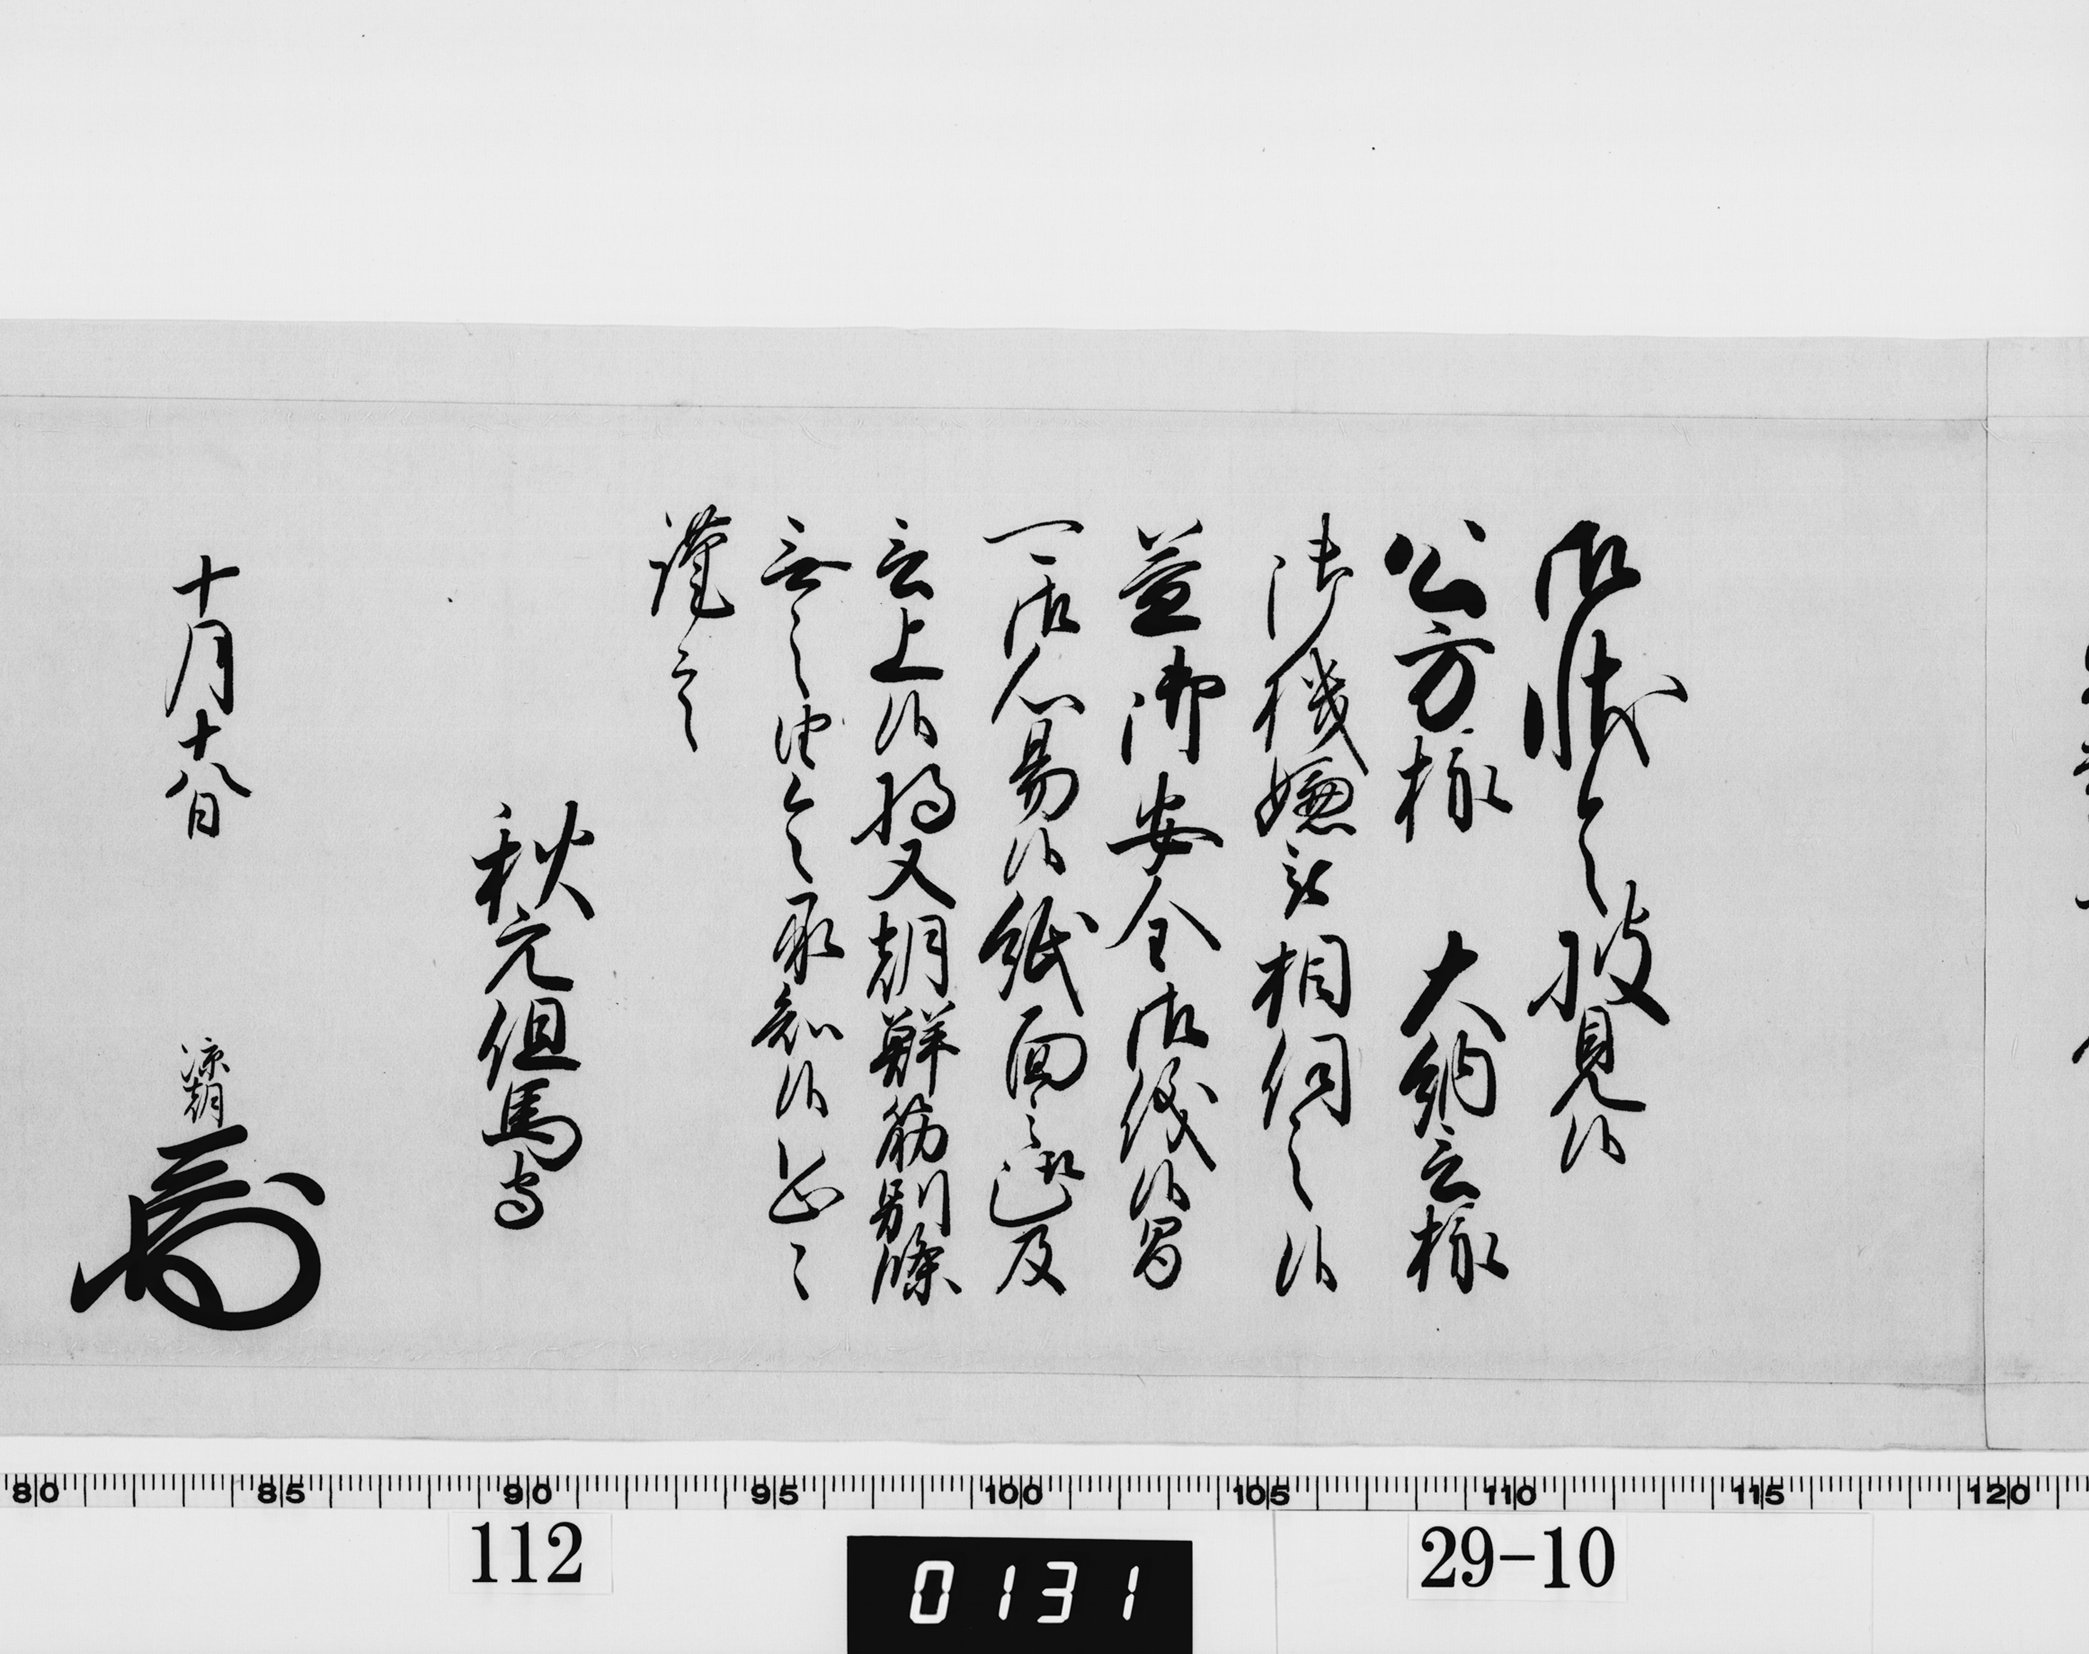 御状令披見候
公方様 大納言様
御機嫌被相伺之候
益御安全御儀候間
可御心易候紙面之趣及
言上候将又朝鮮筋別條
無之令承知候恐々
謹言
秋元但馬守
十月十八日 凉朝
80 85 90 95 100 105 110 115 120
112 0131 29-10